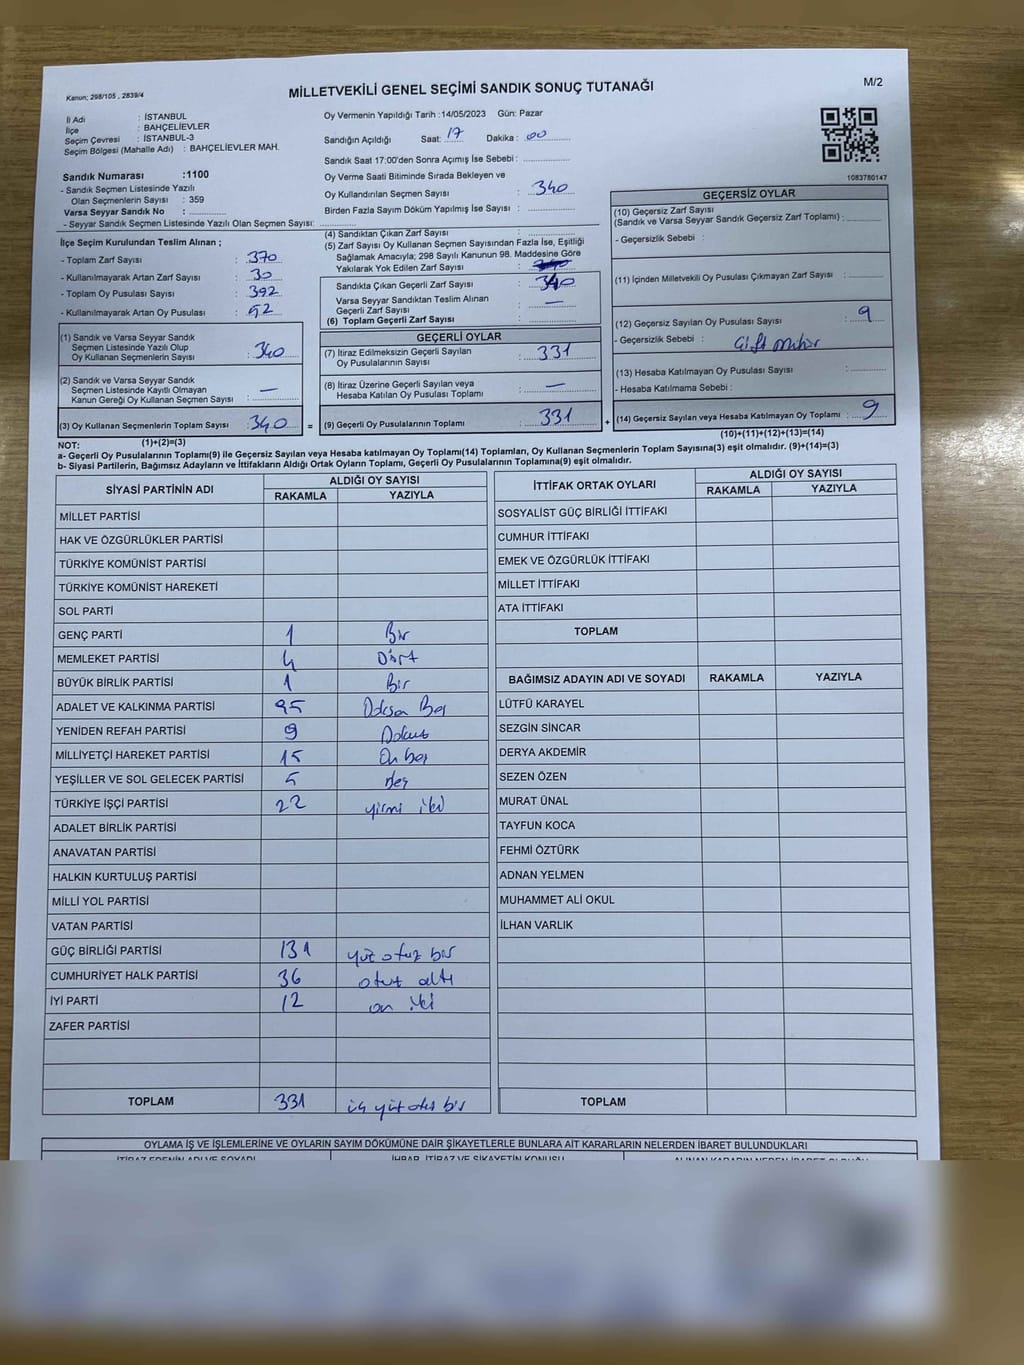 Kanun; 298/105 , 2839/4
MİLLETVEKİLİ GENEL SEÇİMİ SANDIK SONUÇ TUTANAĞI
M/2
İl Adı : İSTANBUL
İlçe : BAHÇELİEVLER
Seçim Çevresi : İSTANBUL-3
Seçim Bölgesi (Mahalle Adı) : BAHÇELİEVLER MAH.
Sandık Numarası :1100
- Sandık Seçmen Listesinde Yazılı
Olan Seçmenlerin Sayısı : 359
Varsa Seyyar Sandık No :
- Seyyar Sandık Seçmen Listesinde Yazılı Olan Seçmen Sayısı:
Oy Vermenin Yapıldığı Tarih :14/05/2023 Gün: Pazar
Sandığın Açıldığı Saat: 17 Dakika : 00
Sandık Saat 17:00'den Sonra Açımış İse Sebebi :
Oy Verme Saati Bitiminde Sırada Bekleyen ve
Oy Kullandırılan Seçmen Sayısı : 340
Birden Fazla Sayım Döküm Yapılmış İse Sayısı :
1083780147
İlçe Seçim Kurulundan Teslim Alınan ;
- Toplam Zarf Sayısı : 370
- Kullanılmayarak Artan Zarf Sayısı : 30
- Toplam Oy Pusulası Sayısı : 392
- Kullanılmayarak Artan Oy Pusulası : 52
(1) Sandık ve Varsa Seyyar Sandık
Seçmen Listesinde Yazılı Olup
Oy Kullanan Seçmenlerin Sayısı : 340
(2) Sandık ve Varsa Seyyar Sandık
Seçmen Listesinde Kayıtlı Olmayan
Kanun Gereği Oy Kullanan Seçmen Sayısı : —
(3) Oy Kullanan Seçmenlerin Toplam Sayısı : 340 =
(1)+(2)=(3)
(4) Sandıktan Çıkan Zarf Sayısı :
(5) Zarf Sayısı Oy Kullanan Seçmen Sayısından Fazla İse, Eşitliği
Sağlamak Amacıyla; 298 Sayılı Kanunun 98. Maddesine Göre
Yakılarak Yok Edilen Zarf Sayısı :
Sandıkta Çıkan Geçerli Zarf Sayısı : 340
Varsa Seyyar Sandıktan Teslim Alınan
Geçerli Zarf Sayısı : —
(6) Toplam Geçerli Zarf Sayısı :
GEÇERLİ OYLAR
(7) İtiraz Edilmeksizin Geçerli Sayılan
Oy Pusulalarının Sayısı : 331
(8) İtiraz Üzerine Geçerli Sayılan veya
Hesaba Katılan Oy Pusulası Toplamı : —
(9) Geçerli Oy Pusulalarının Toplamı : 331 +
GEÇERSİZ OYLAR
(10) Geçersiz Zarf Sayısı
(Sandık ve Varsa Seyyar Sandık Geçersiz Zarf Toplamı) :
- Geçersizlik Sebebi :
(11) İçinden Milletvekili Oy Pusulası Çıkmayan Zarf Sayısı :
(12) Geçersiz Sayılan Oy Pusulası Sayısı : 9
- Geçersizlik Sebebi : Çift mühür
(13) Hesaba Katılmayan Oy Pusulası Sayısı :
- Hesaba Katılmama Sebebi :
(14) Geçersiz Sayılan veya Hesaba Katılmayan Oy Toplamı : 9
(10)+(11)+(12)+(13)=(14)
NOT:
a- Geçerli Oy Pusulalarının Toplamı(9) ile Geçersiz Sayılan veya Hesaba katılmayan Oy Toplamı(14) Toplamları, Oy Kullanan Seçmenlerin Toplam Sayısına(3) eşit olmalıdır. (9)+(14)=(3)
b- Siyasi Partilerin, Bağımsız Adayların ve İttifakların Aldığı Ortak Oyların Toplamı, Geçerli Oy Pusulalarının Toplamına(9) eşit olmalıdır.
SİYASİ PARTİNİN ADI ALDIĞI OY SAYISI
RAKAMLA YAZIYLA
MİLLET PARTİSİ
HAK VE ÖZGÜRLÜKLER PARTİSİ
TÜRKİYE KOMÜNİST PARTİSİ
TÜRKİYE KOMÜNİST HAREKETİ
SOL PARTİ
GENÇ PARTİ 1 Bir
MEMLEKET PARTİSİ 4 Dört
BÜYÜK BİRLİK PARTİSİ 1 Bir
ADALET VE KALKINMA PARTİSİ 95 Doksan Beş
YENİDEN REFAH PARTİSİ 9 Dokuz
MİLLİYETÇİ HAREKET PARTİSİ 15 On beş
YEŞİLLER VE SOL GELECEK PARTİSİ 5 Beş
TÜRKİYE İŞÇİ PARTİSİ 22 yirmi iki
ADALET BİRLİK PARTİSİ
ANAVATAN PARTİSİ
HALKIN KURTULUŞ PARTİSİ
MİLLİ YOL PARTİSİ
VATAN PARTİSİ
GÜÇ BİRLİĞİ PARTİSİ 131 yüz otuz bir
CUMHURİYET HALK PARTİSİ 36 otuz altı
İYİ PARTİ 12 on iki
ZAFER PARTİSİ
TOPLAM 331 üç yüz otuz bir
İTTİFAK ORTAK OYLARI ALDIĞI OY SAYISI
RAKAMLA YAZIYLA
SOSYALİST GÜÇ BİRLİĞİ İTTİFAKI
CUMHUR İTTİFAKI
EMEK VE ÖZGÜRLÜK İTTİFAKI
MİLLET İTTİFAKI
ATA İTTİFAKI
TOPLAM
BAĞIMSIZ ADAYIN ADI VE SOYADI RAKAMLA YAZIYLA
LÜTFÜ KARAYEL
SEZGİN SİNCAR
DERYA AKDEMİR
SEZEN ÖZEN
MURAT ÜNAL
TAYFUN KOCA
FEHMİ ÖZTÜRK
ADNAN YELMEN
MUHAMMET ALİ OKUL
İLHAN VARLIK
TOPLAM
OYLAMA İŞ VE İŞLEMLERİNE VE OYLARIN SAYIM DÖKÜMÜNE DAİR ŞİKAYETLERLE BUNLARA AİT KARARLARIN NELERDEN İBARET BULUNDUKLARI
İTİRAZ EDENİN ADI VE SOYADI İHBAR, İTİRAZ VE ŞİKAYETİN KONUSU ALINAN KARARIN NEDEN İBARET OLDUĞU